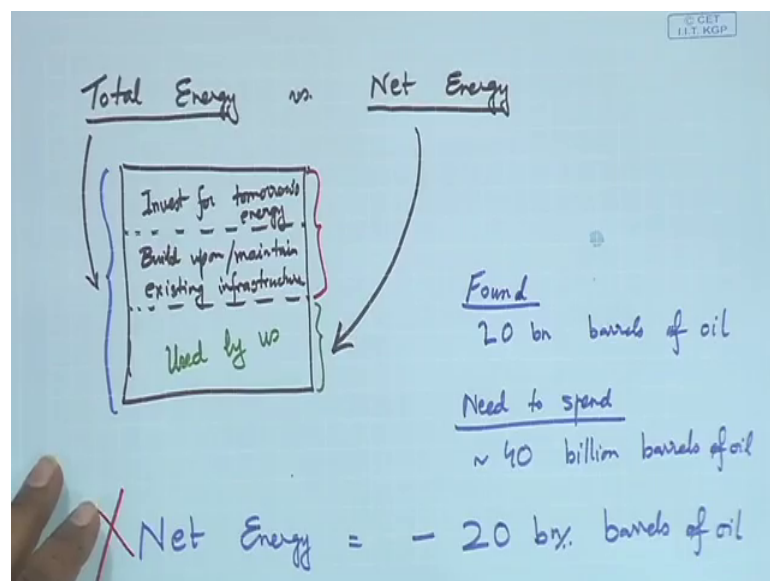 © CET
I.I.T. KGP
Total Energy vs. Net Energy
Invest for tomorrow's
energy
Build upon/maintain
existing infrastructure
Used by us
Found
20 bn barrels of oil
Need to spend
~ 40 billion barrels of oil
Net Energy = - 20 bn barrels of oil